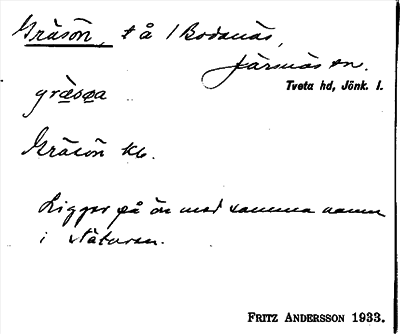 Gräsön, t å 1 Bodanäs,
Järsnäs sn.
Tveta hd, Jönk. l.
gräsøa
Gräsön kb.
Ligger på ön med samma namn
i Nätaren.
FRITZ ANDERSSON 1933.